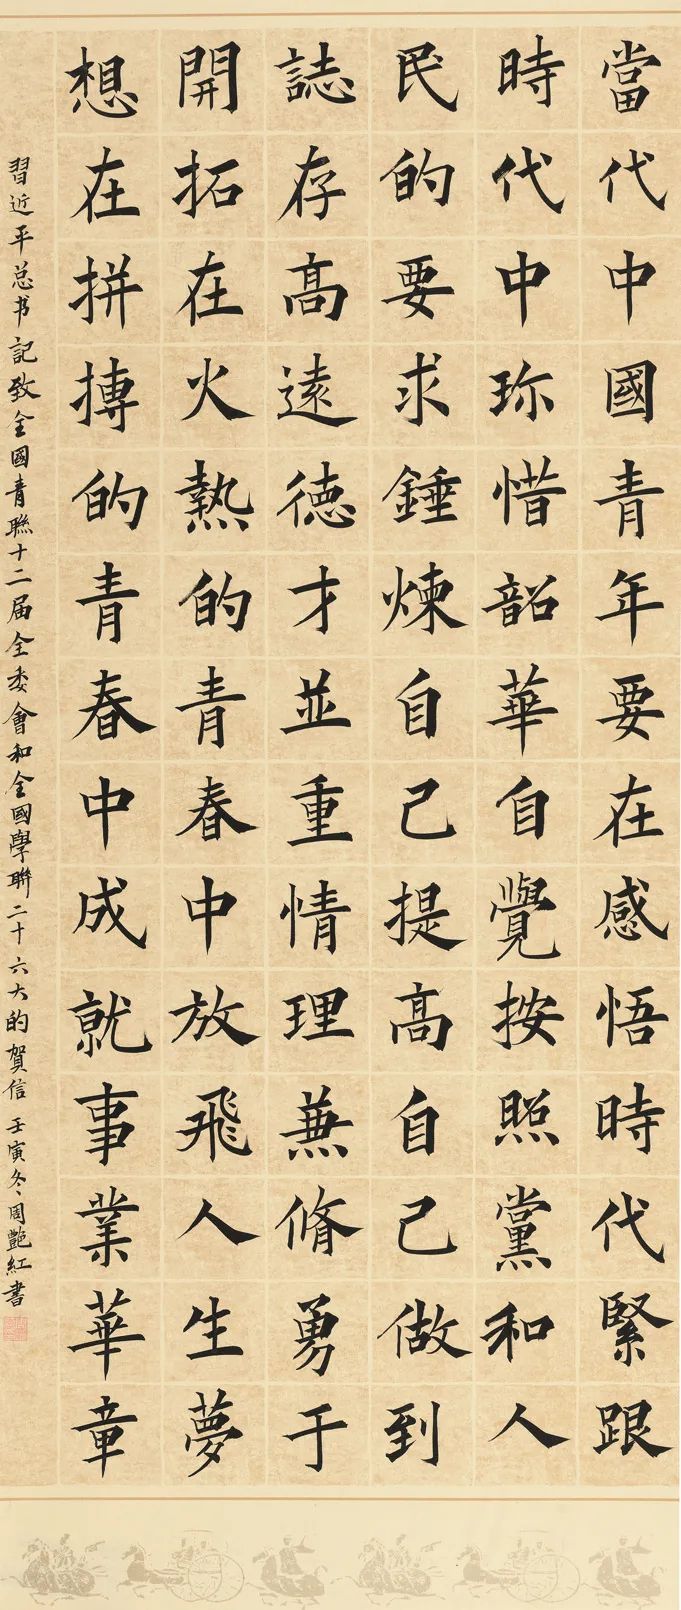 當代中國青年要在感悟時代緊跟
時代中珎惜韶華自覺按照黨和人
民的要求錘煉自己提高自己做到
誌存高遠德才並重情理兼脩勇于
開拓在火熱的青春中放飛人生夢
想在拼搏的青春中成就事業華章
習近平总书記致全國青聯十二届全委會和全國學聯二十六大的賀信 壬寅冬、周艷紅書